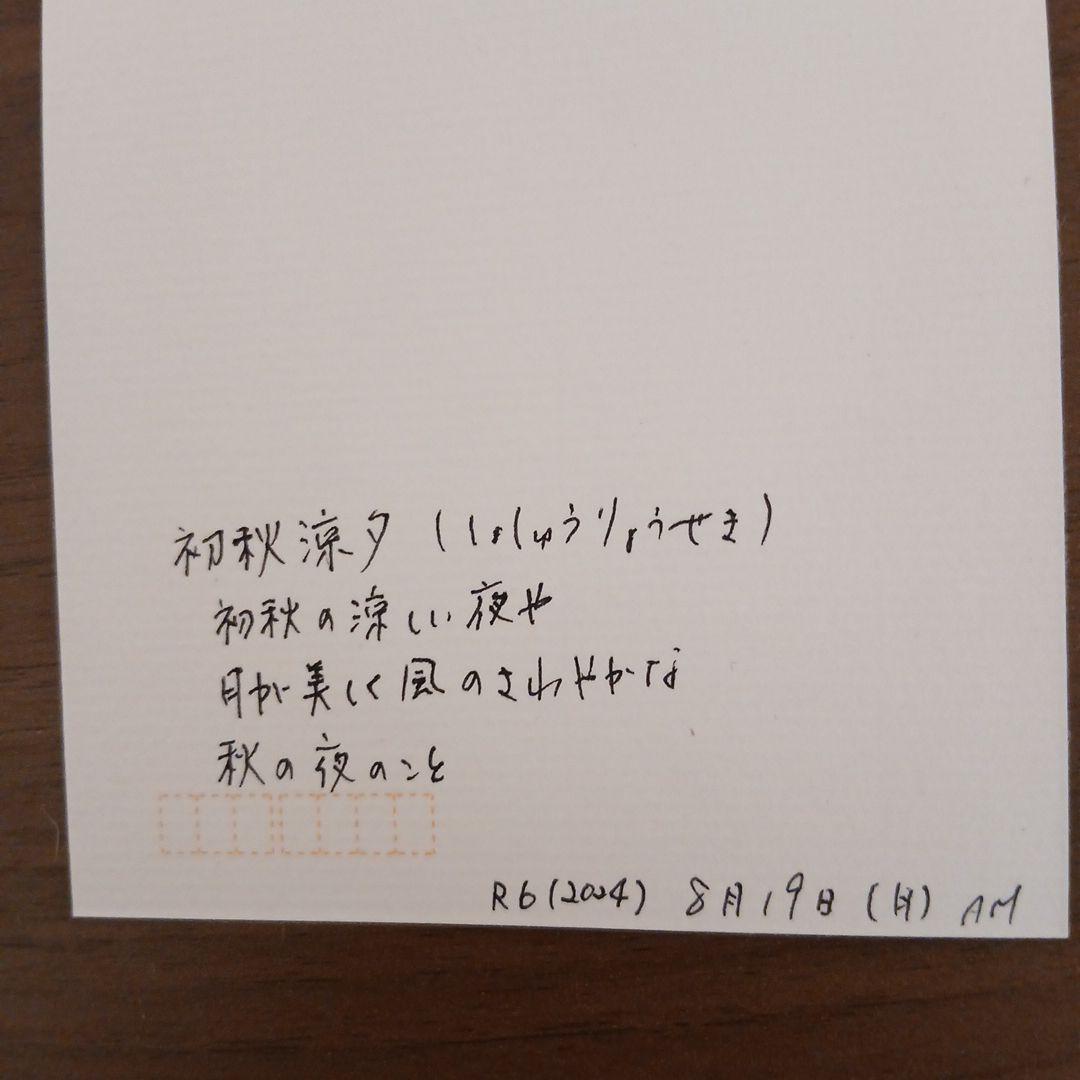 初秋涼夕(しょしゅうりょうせき)
初秋の涼しい夜や
月が美しく風のさわやかな
秋の夜のこと
R6(2024) 8月19日(月) AM